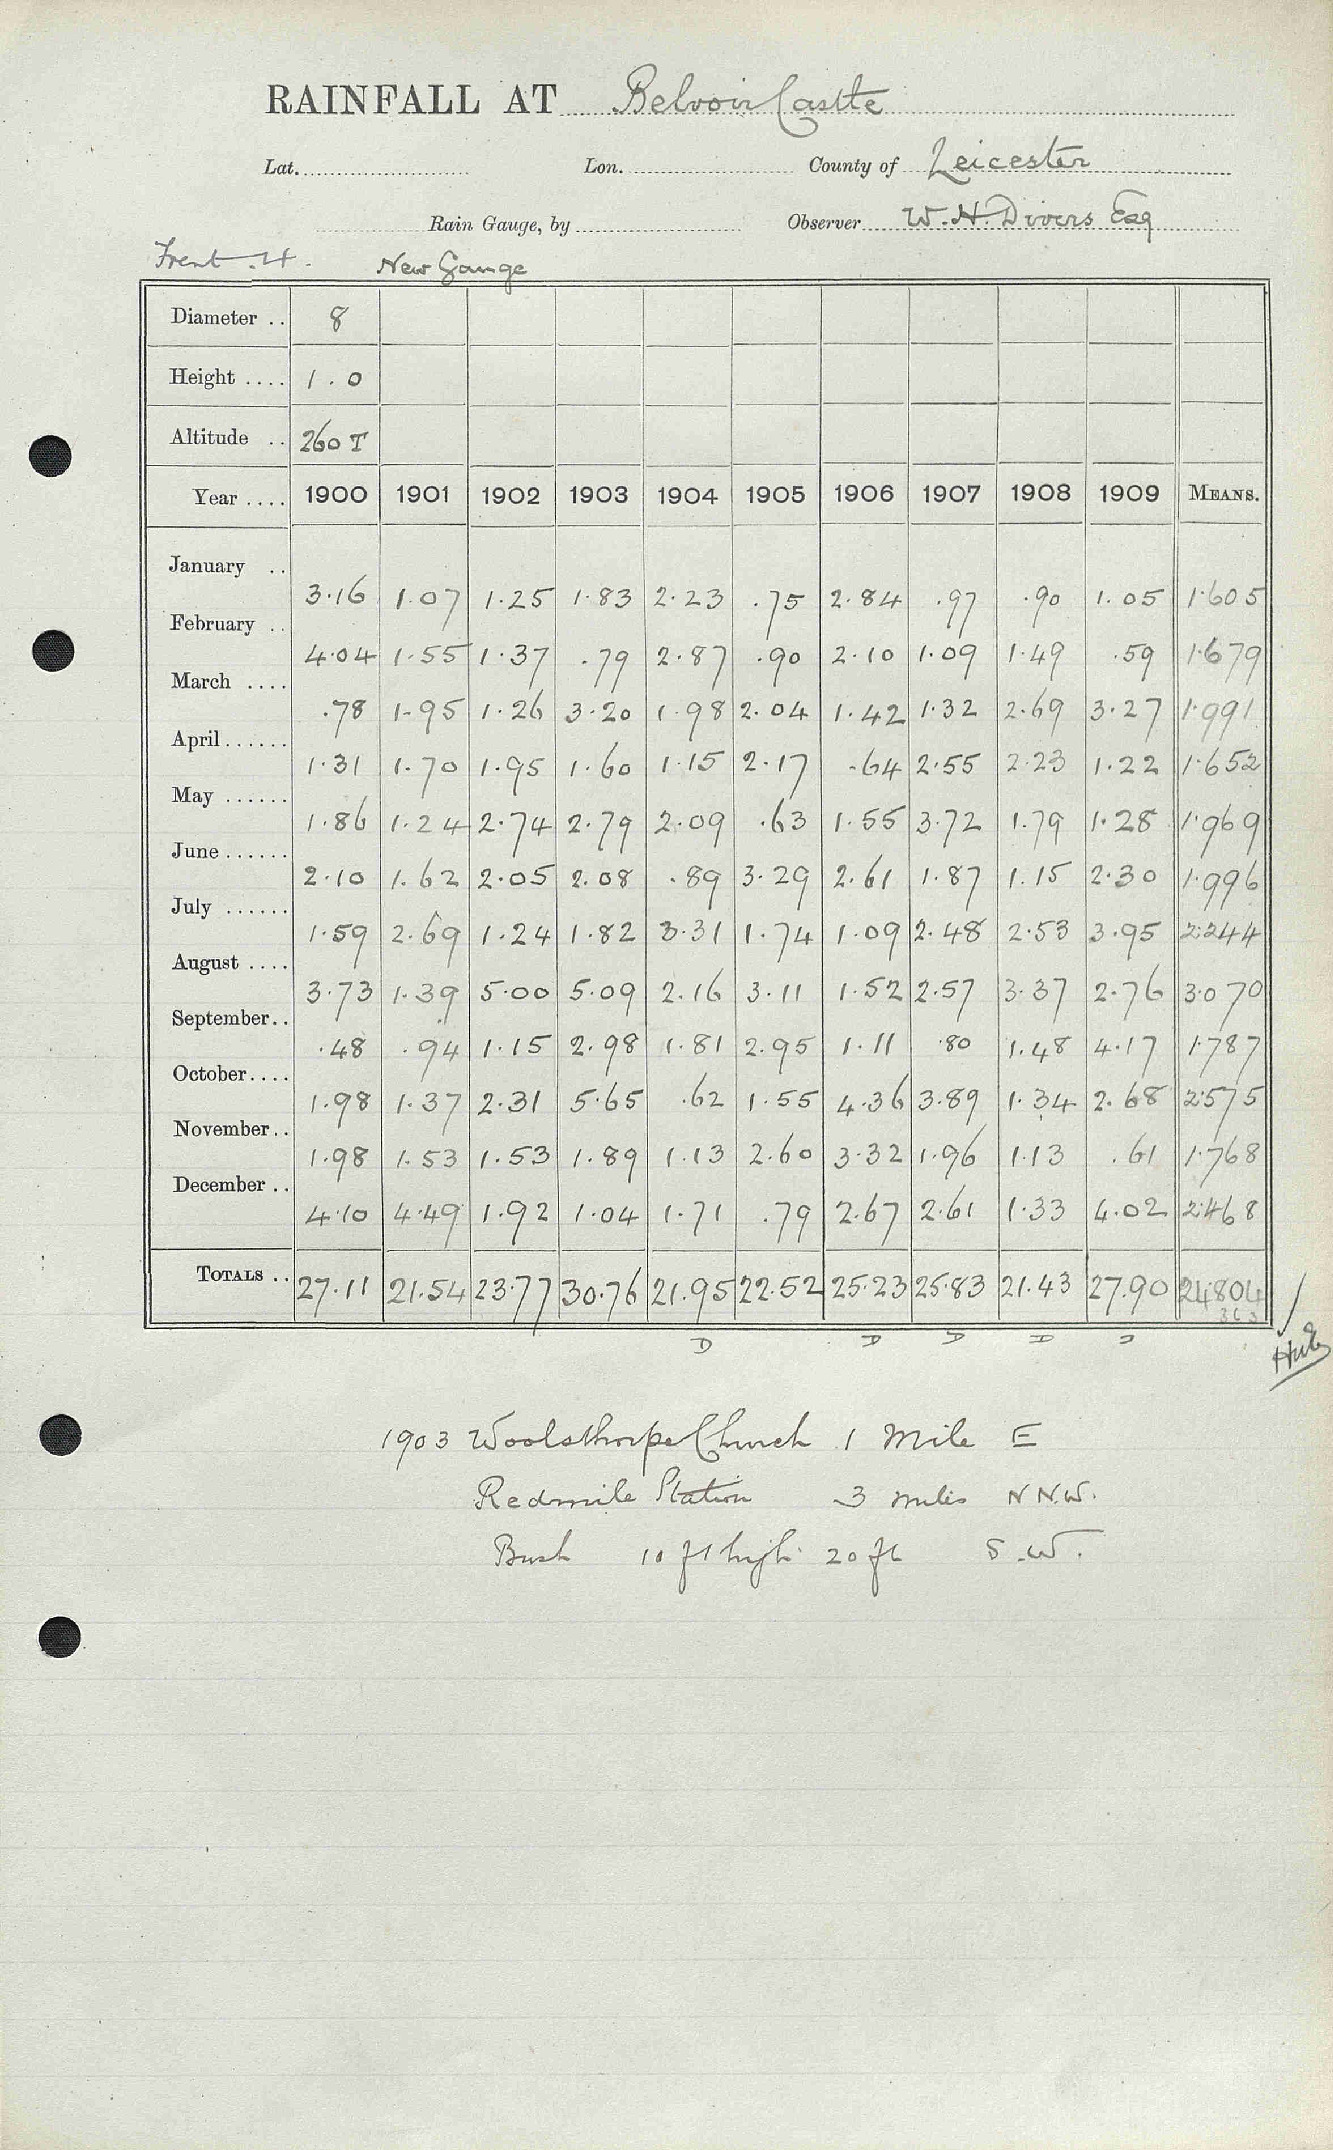 RAINFALL AT Belvoir Castle
Lat. Lon. County of Leicester
Rain Gauge, by Observer W. H. Divers Esq
Trent .4. New Gauge
Diameter .. 8
Height .... 1.0
Altitude .. 260 T
Year .... 1900 1901 1902 1903 1904 1905 1906 1907 1908 1909 MEANS.
January .. 3.16 1.07 1.25 1.83 2.23 .75 2.84 .97 .90 1.05 1.605
February .. 4.04 1.55 1.37 .79 2.87 .90 2.10 1.09 1.49 .59 1.679
March .... .78 1.95 1.26 3.20 1.98 2.04 1.42 1.32 2.69 3.27 1.991
April...... 1.31 1.70 1.95 1.60 1.15 2.17 .64 2.55 2.23 1.22 1.652
May ...... 1.86 1.24 2.74 2.79 2.09 .63 1.55 3.72 1.79 1.28 1.969
June...... 2.10 1.62 2.05 2.08 .89 3.29 2.61 1.87 1.15 2.30 1.996
July ...... 1.59 2.69 1.24 1.82 3.31 1.74 1.09 2.48 2.53 3.95 2.244
August .... 3.73 1.39 5.00 5.09 2.16 3.11 1.52 2.57 3.37 2.76 3.070
September.. .48 .94 1.15 2.98 1.81 2.95 1.11 .80 1.48 4.17 1.787
October.... 1.98 1.37 2.31 5.65 .62 1.55 4.36 3.89 1.34 2.68 2.575
November.. 1.98 1.53 1.53 1.89 1.13 2.60 3.32 1.96 1.13 .61 1.768
December .. 4.10 4.49 1.92 1.04 1.71 .79 2.67 2.61 1.33 4.02 2.468
TOTALS .. 27.11 21.54 23.77 30.76 21.95 22.52 25.23 25.83 21.43 27.90 24.804
D D D D D
1903 Woolsthorpe Church 1 Mile E
Redmile Station 3 miles N N.W.
Bush 10 ft high 20 ft S.W.